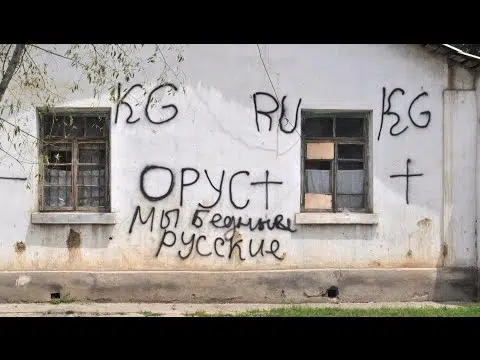 KG RU KG
ОРУС
Мы бедные
русские